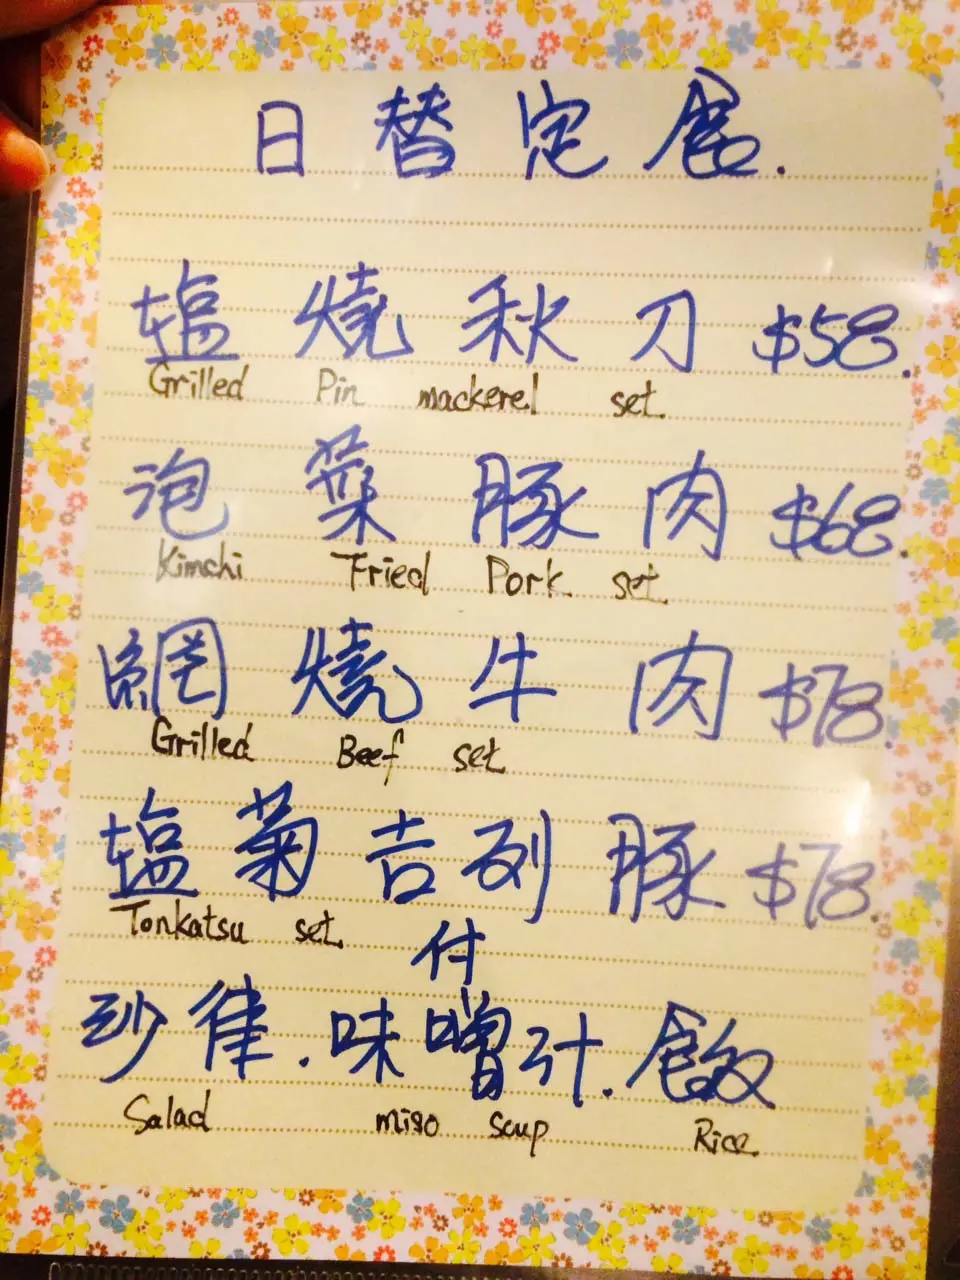 日替定食.
塩燒秋刀 $58.
Grilled Pin mackerel set
泡菜豚肉 $68.
Kimchi Fried Pork set.
網燒牛肉 $78.
Grilled Beef set
塩菊吉列豚 $78.
Tonkatsu set
付
沙律.味噌汁.飯
Salad miso soup Rice